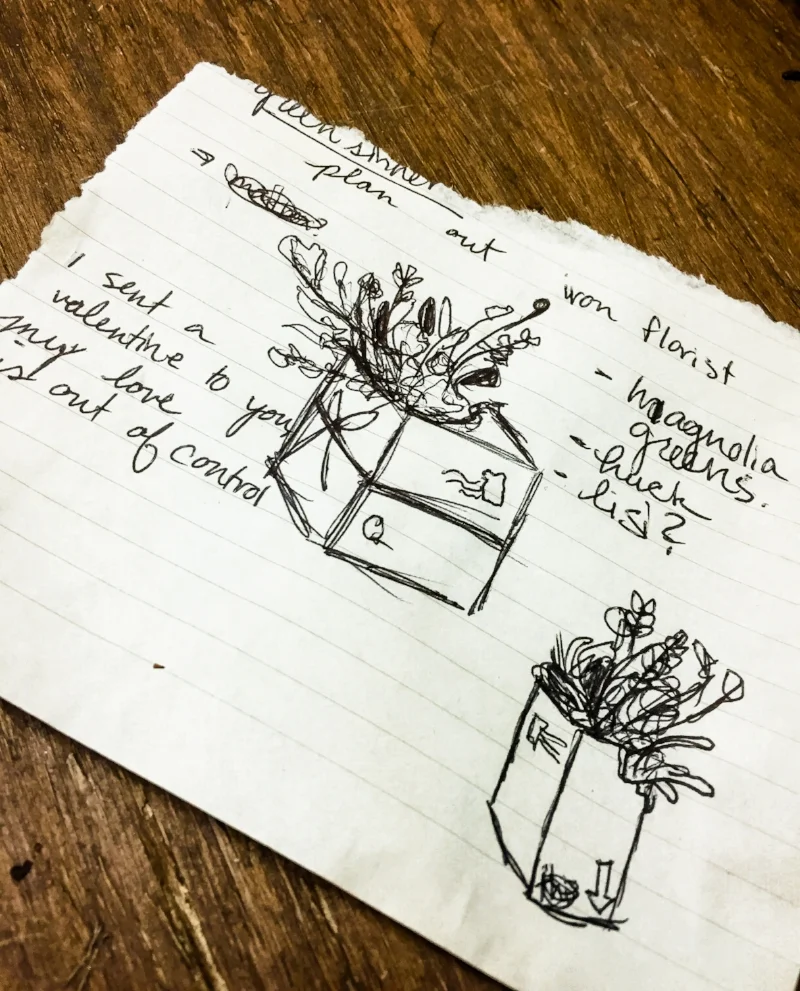 green sinner
plan out
I sent a
valentine to you
my love
is out of control
won florist
- magnolia
greens.
- huck
- list?
Q